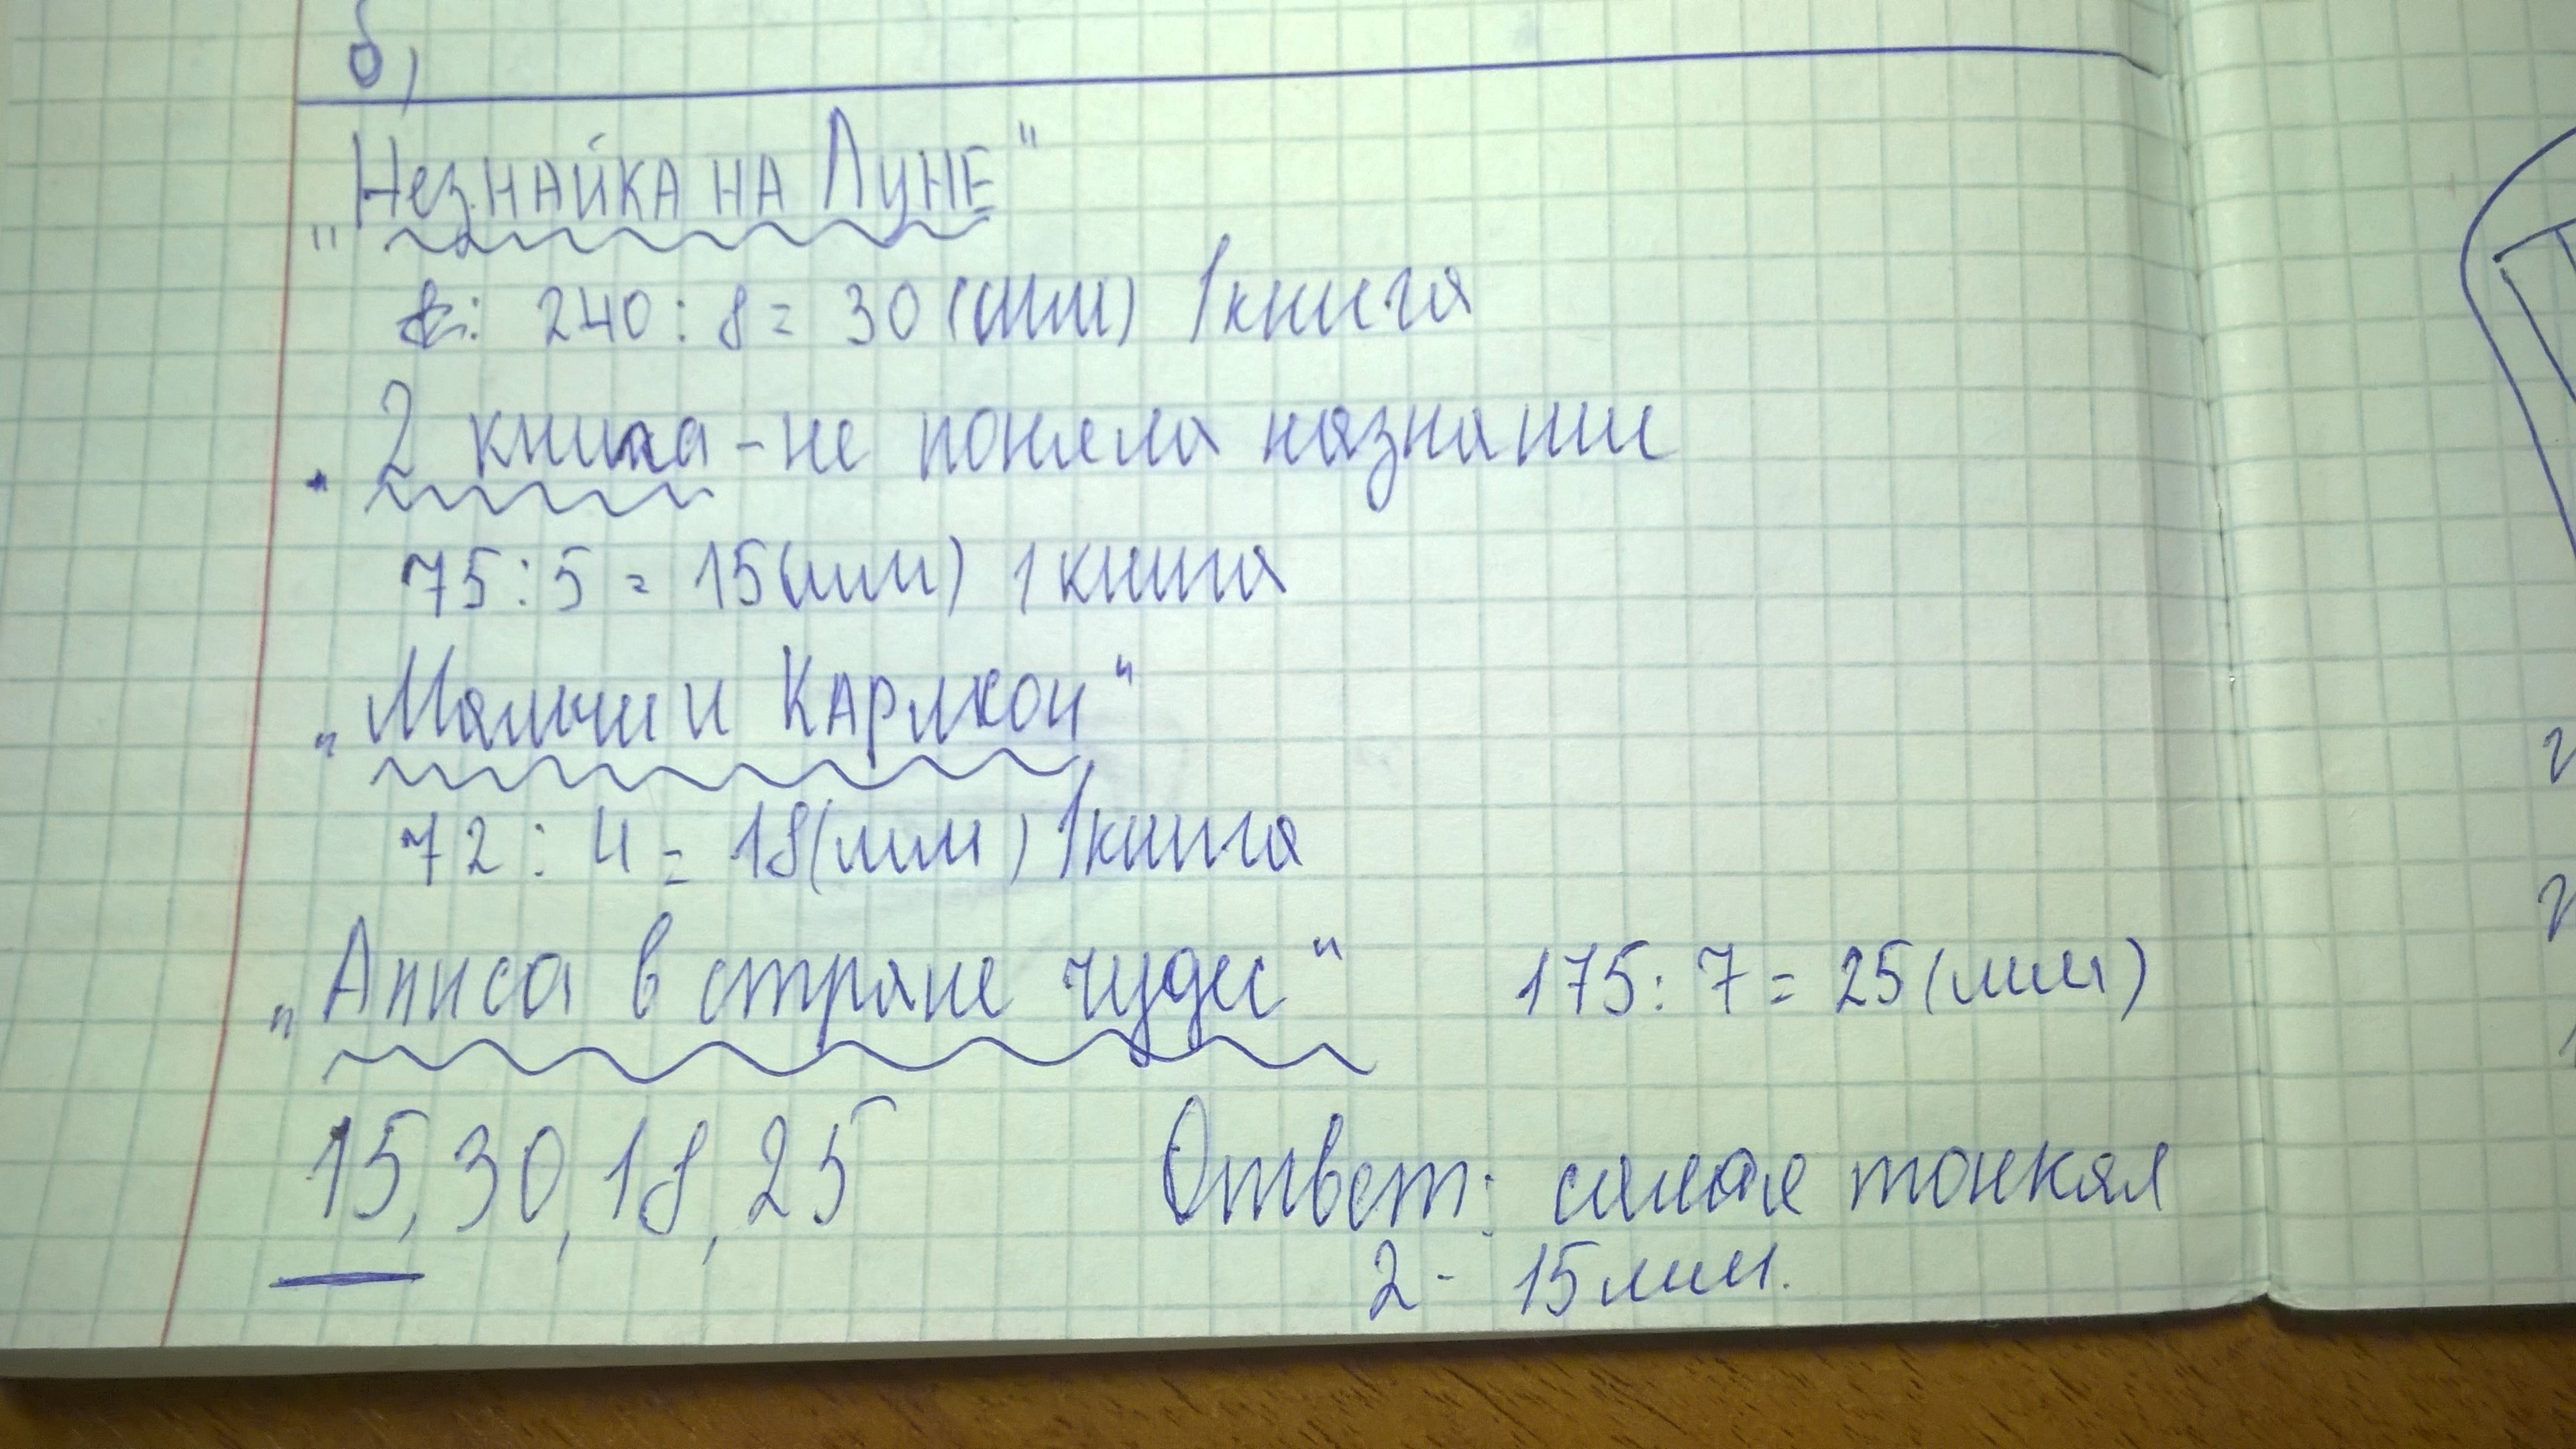 б)
"Незнайка на Луне"
240 : 8 = 30 (мм) 1 книга
2 книга - не поняла название
75 : 5 = 15 (мм) 1 книга
"Малыш и Карлсон"
72 : 4 = 18 (мм) 1 книга
"Алиса в стране чудес" 175 : 7 = 25 (мм)
15, 30, 18, 25
Ответ: самая тонкая
2 - 15 мм.